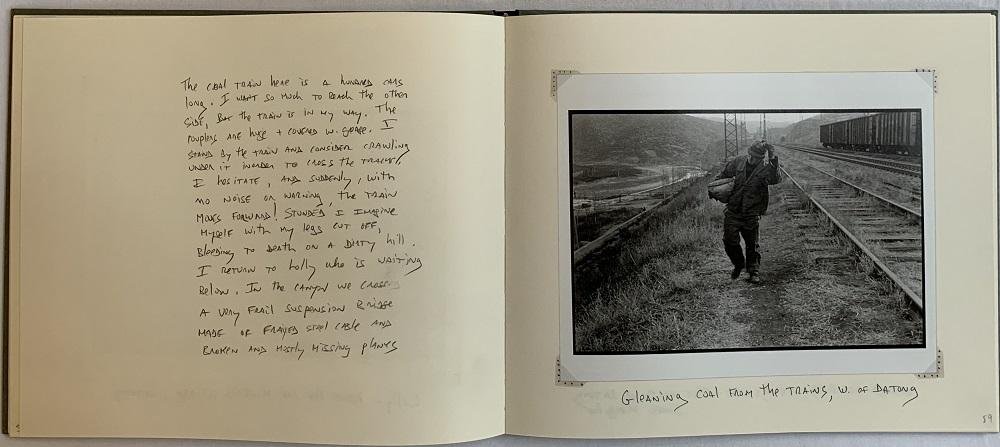 The coal train here is a hundred cars
long. I want so much to reach the other
side, but the train is in my way. The
couplers are huge + covered w. grease. I
stand by the train and consider crawling
under it in order to cross the tracks.
I hesitate, and suddenly, with
no noise or warning, the train
moves forward! Stunded I imagine
myself with my legs cut off,
bleeding to death on a dirty hill.
I return to Holly who is waiting
below. In the canyon we crossed
a very frail suspension bridge
made of frayed steel cable and
broken and mostly missing planks
Gleaning coal from the trains, W. of Datong
59